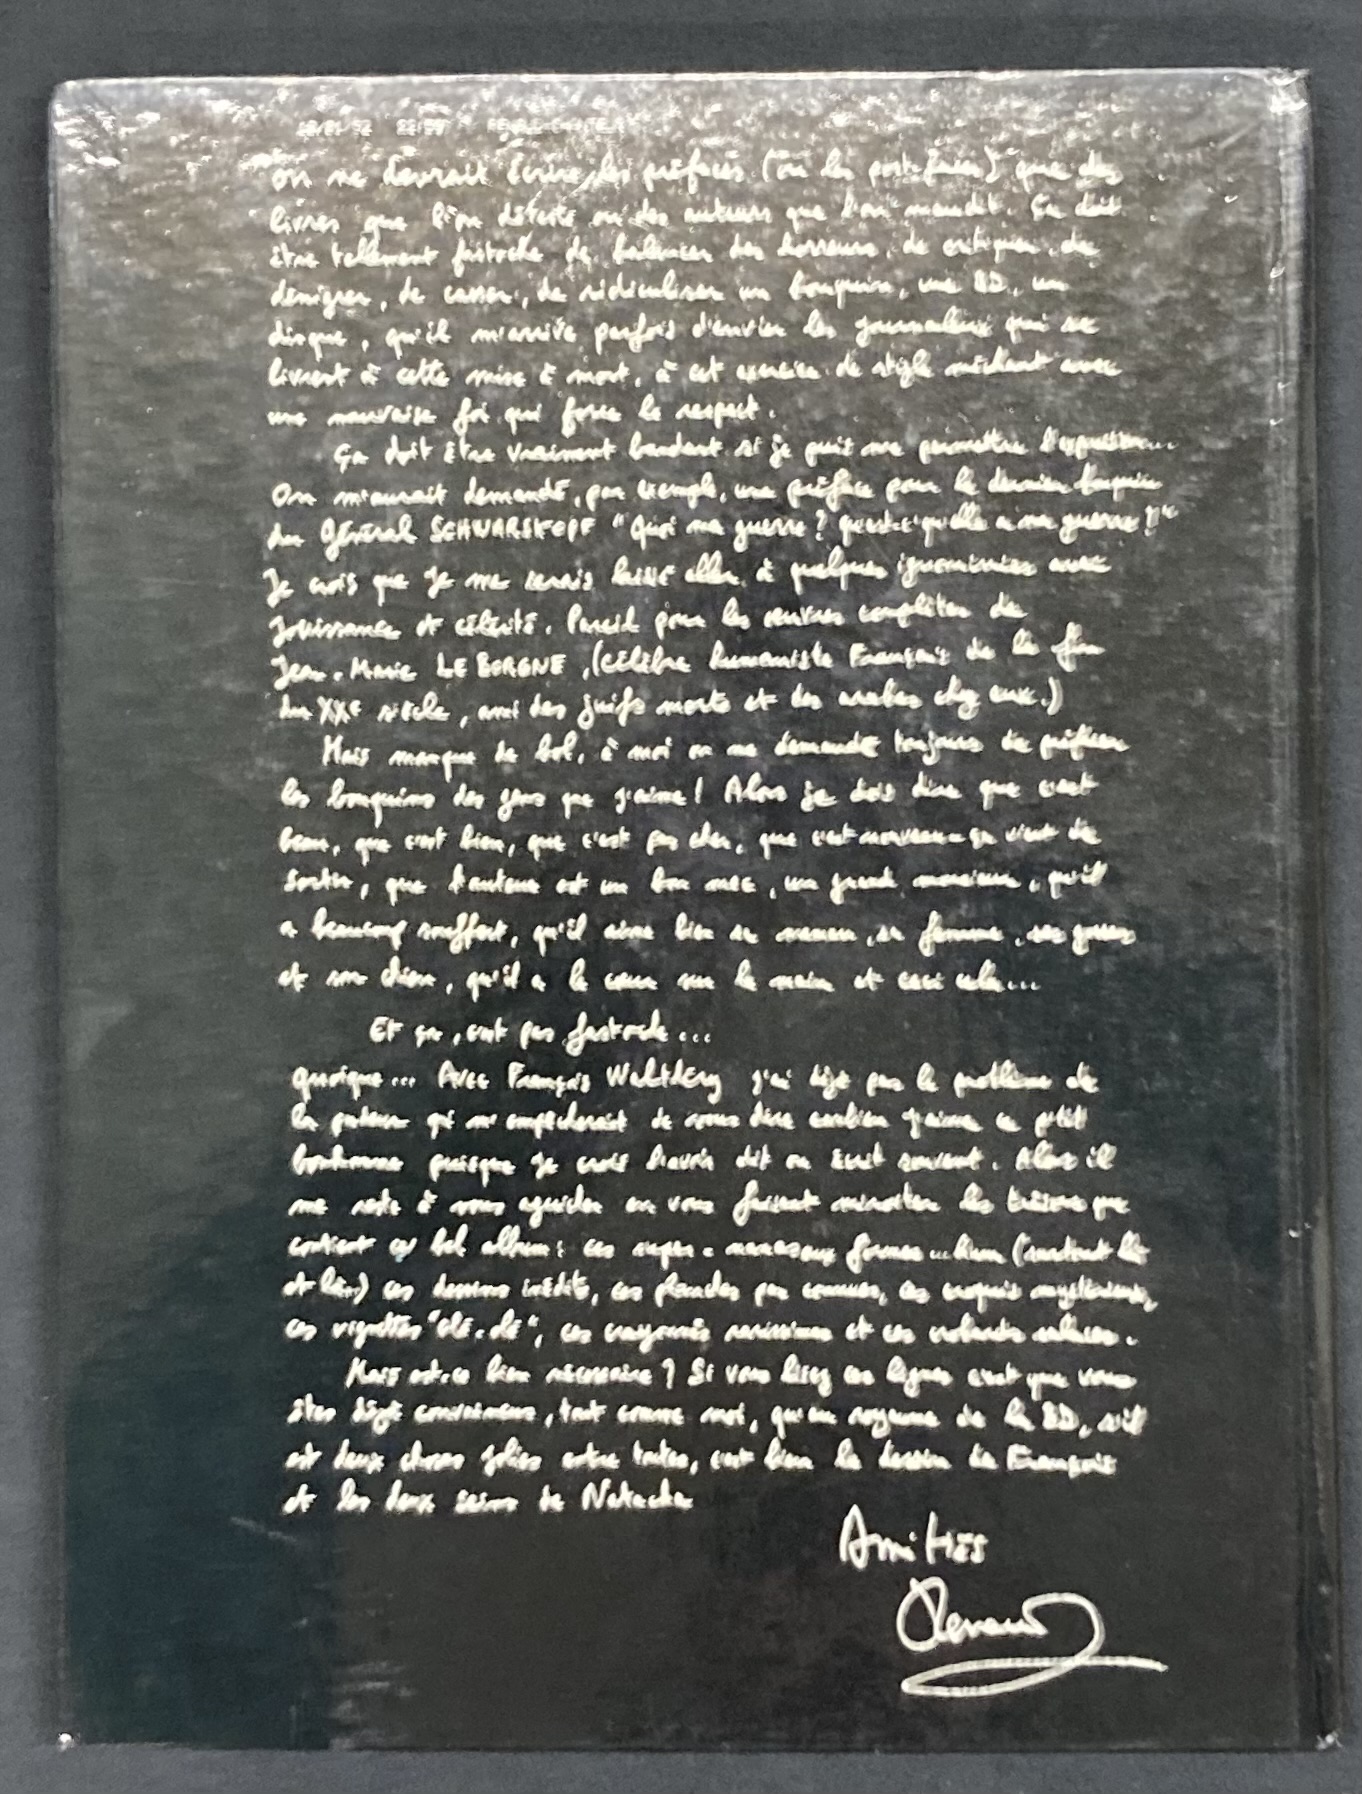 On ne devrait écrire les préfaces (ou les postfaces) que des
livres que l'on déteste ou des auteurs que l'on maudit. Ça doit
être tellement fastoche de balancer des horreurs, de critiquer, de
dénigrer, de casser, de ridiculiser un bouquin, une BD, un
disque, qu'il m'arrive parfois d'envier les journaleux qui se
livrent à cette mise à mort, à cet exercice de style méchant avec
une mauvaise foi qui force le respect.
Ça doit être vraiment bandant si je puis me permettre l'expression...
On m'aurait demandé, par exemple, une préface pour le dernier bouquin
du Général SCHWARSKOPF "Quoi ma guerre? qu'est-c'qu'elle a ma guerre?!"
Je crois que je me serais laissé aller à quelques ignominies avec
jouissance et célérité. Pareil pour les œuvres complètes de
Jean-Marie LE BORGNE, (célèbre humaniste Français de la fin
du XXe siècle, ami des juifs morts et des arabes chez eux.)
Mais manque de bol, à moi on me demande toujours de préfacer
les bouquins des gens que j'aime! Alors je dois dire que c'est
beau, que c'est bien, que c'est pas cher, que c'est nouveau-ça vient de
sortir, que l'auteur est un bon mec, un grand monsieur, qu'il
a beaucoup souffert, qu'il aime bien sa maman, sa femme, ses gosses
et son chien, qu'il a le cœur sur la main et ceci cela...
Et ça, c'est pas fastoche...
Quoique... Avec François Walthéry j'ai déjà pas le problème de
la pudeur qui m'empêcherait de vous dire combien j'aime ce p'tit
bonhomme puisque je crois l'avoir dit ou écrit souvent. Alors il
me reste à vous aguicher en vous faisant miroiter les trésors que
contient ce bel album: ces super-nanas aux formes... hum (surtout là
et là..) ces dessins inédits, ces planches peu connues, ces croquis mystérieux,
ces vignettes "clé-de", ces crayonnés rarissimes et ces
Mais est-ce bien nécessaire? Si vous lisez ces lignes c'est que vous
êtes déjà convaincus, tout comme moi, qu'au royaume de la BD, s'il
est deux choses jolies entre toutes, c'est bien le dessin de François
et les deux seins de Natacha
Amitiés
Renaud